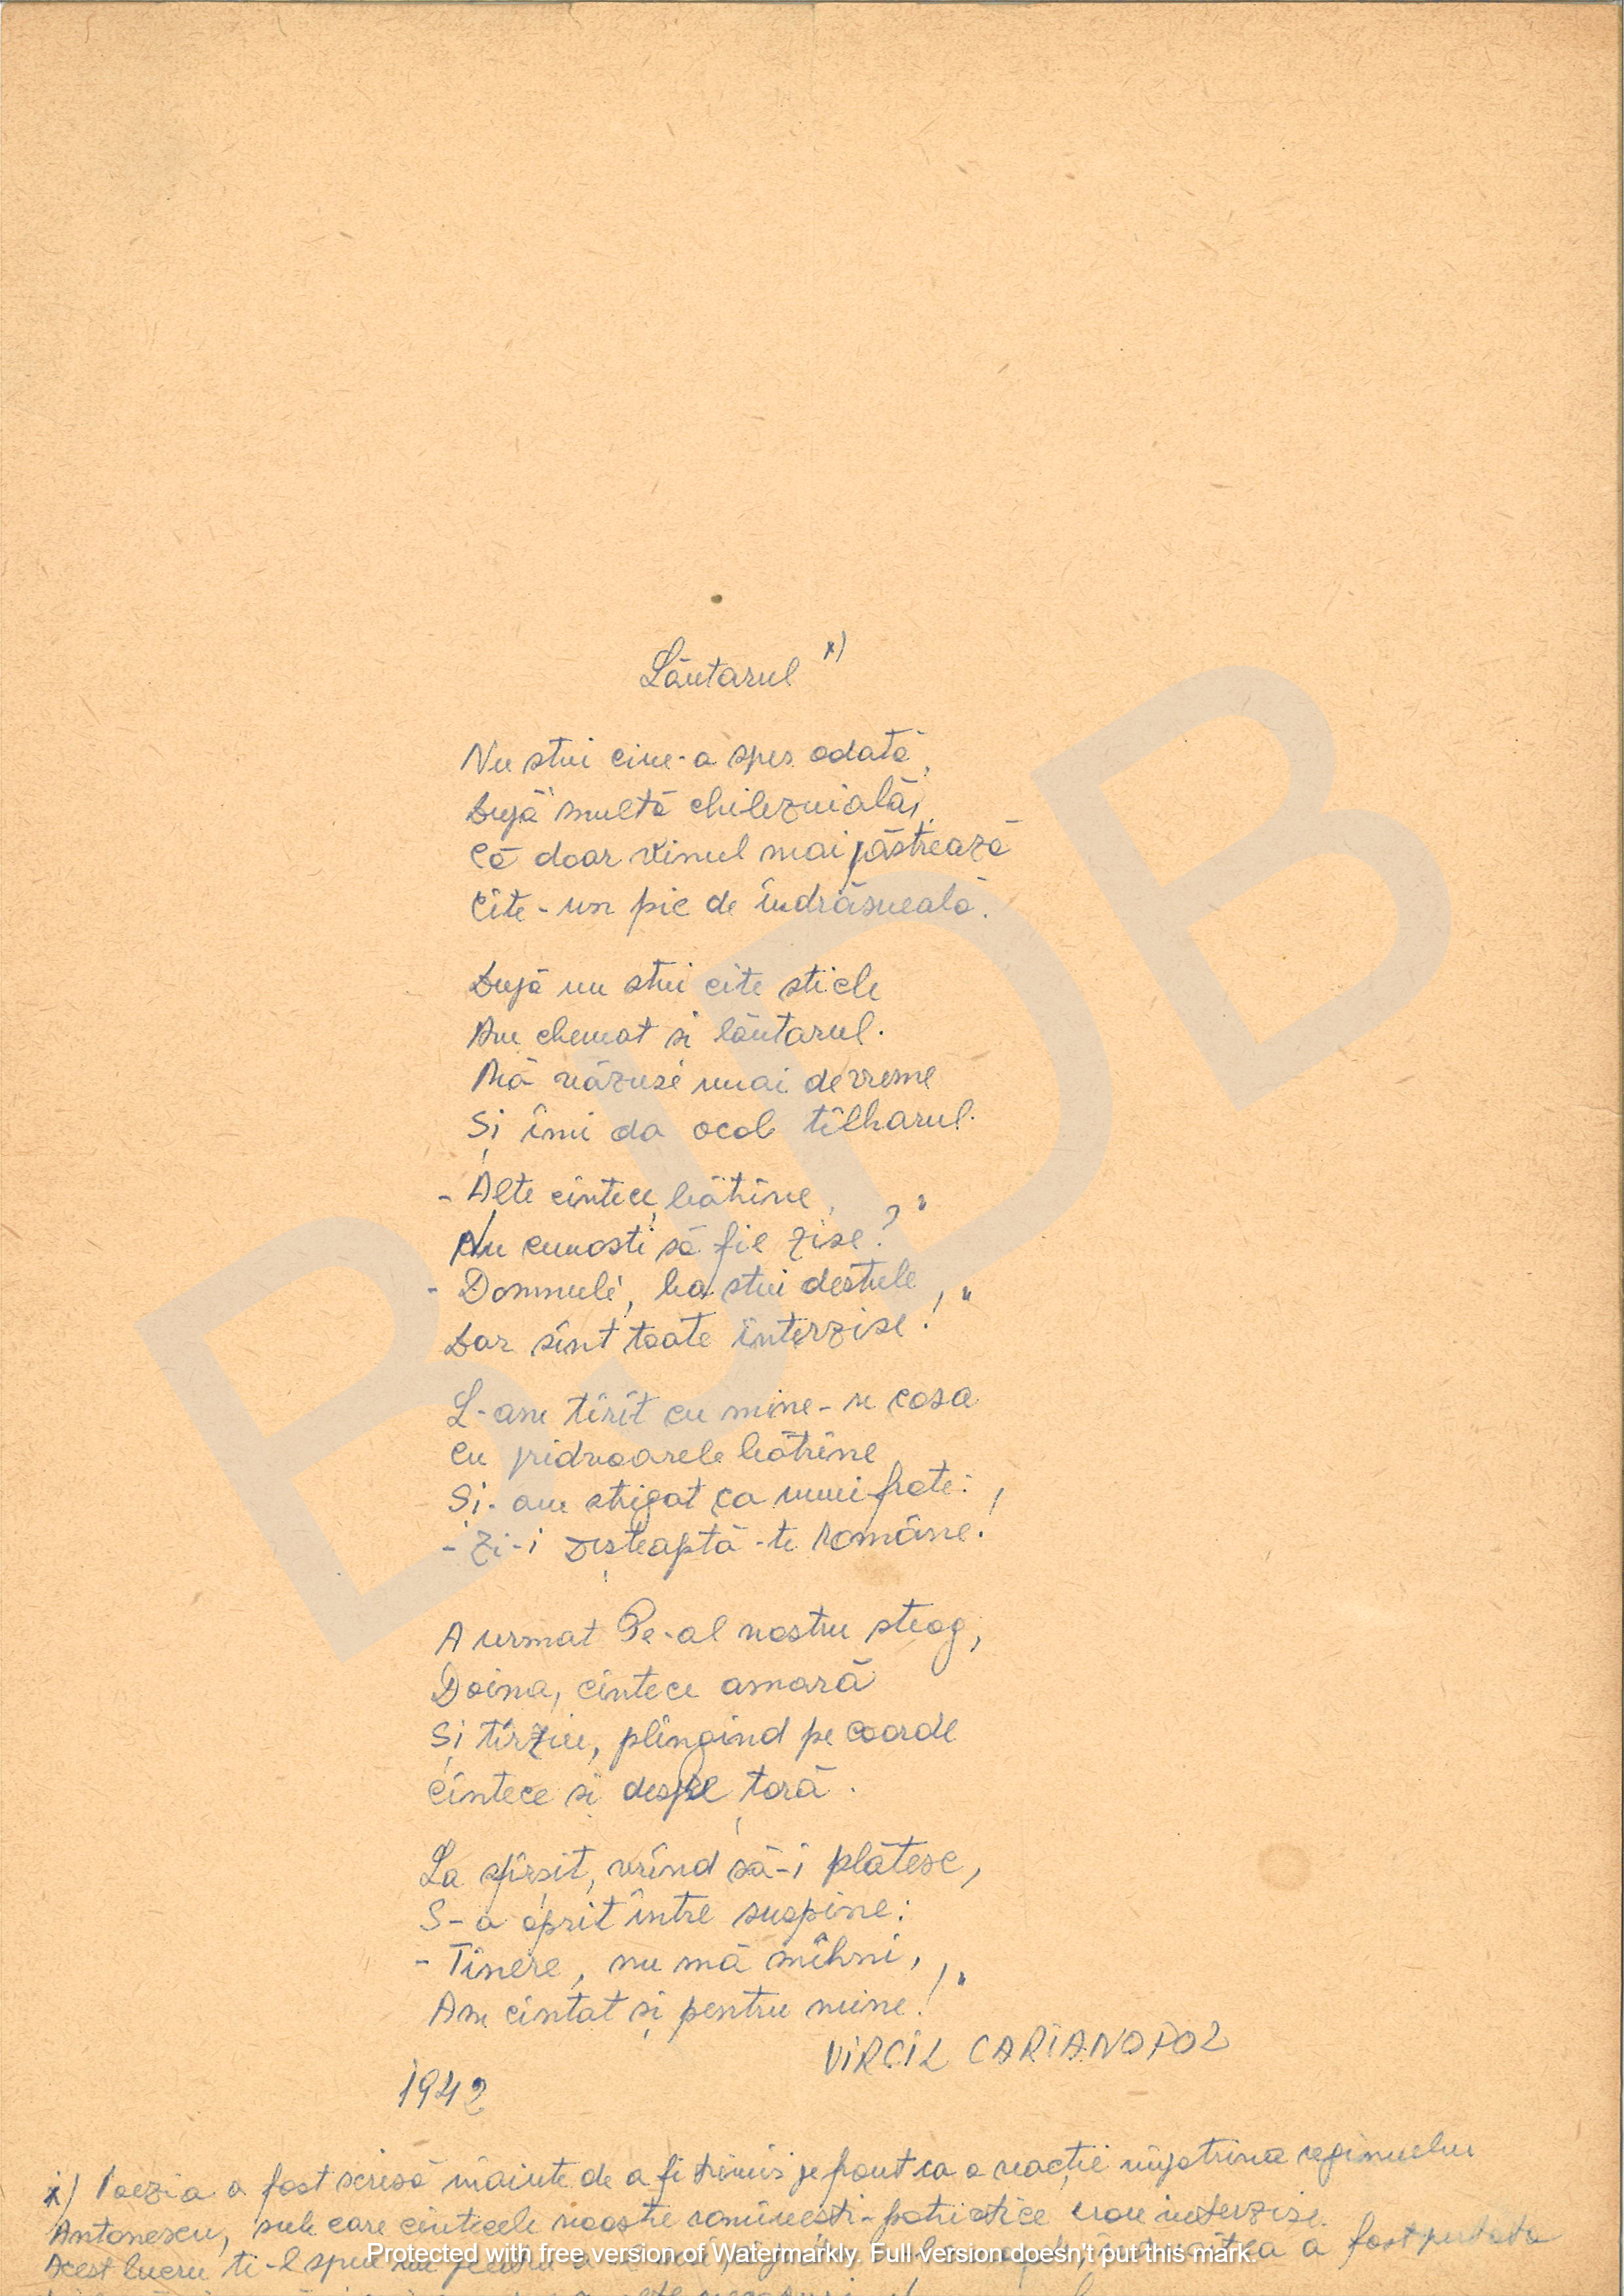 Lăutarul x)
Nu știi cine-a spus odată,
După multă chibzuială,
Că doar vinul mai păstrează
Cîte-un pic de îndrăsneală.
După nu știu cîte sticle
Am chemat și lăutarul.
Mă văzuse mai devreme
Și îmi da ocol tîlharul.
- Alte cîntece, bătrîne,
Nu cunoști să fie zise? "
- Domnule, ba știu destule,
Dar sînt toate interzise! "
L-am tîrît cu mine-n casa
Cu pridvoarele bătrîne
Și-am strigat ca unui frate:
- Zi-i Deșteaptă-te Române!
A urmat Pe-al nostru steag,
Doina, cîntece amară
Și tîrziu, plîngînd pe coarde
Cîntece și despre țară.
La sfîrșit, vrînd să-i plătesc,
S-a oprit între suspine:
- Tinere, nu mă mîhni,
Am cîntat și pentru mine! "
VIRGIL CARIANOPOL
1942
x) Poezia a fost scrisă înainte de a fi trimis pe front ca o reacție împotriva regimului
Antonescu, sub care cîntecele noastre romînești-patriotice erau interzise.
Acest lucru ți-l spun a fost
Protected with free version of Watermarkly. Full version doesn't put this mark.
BJDB